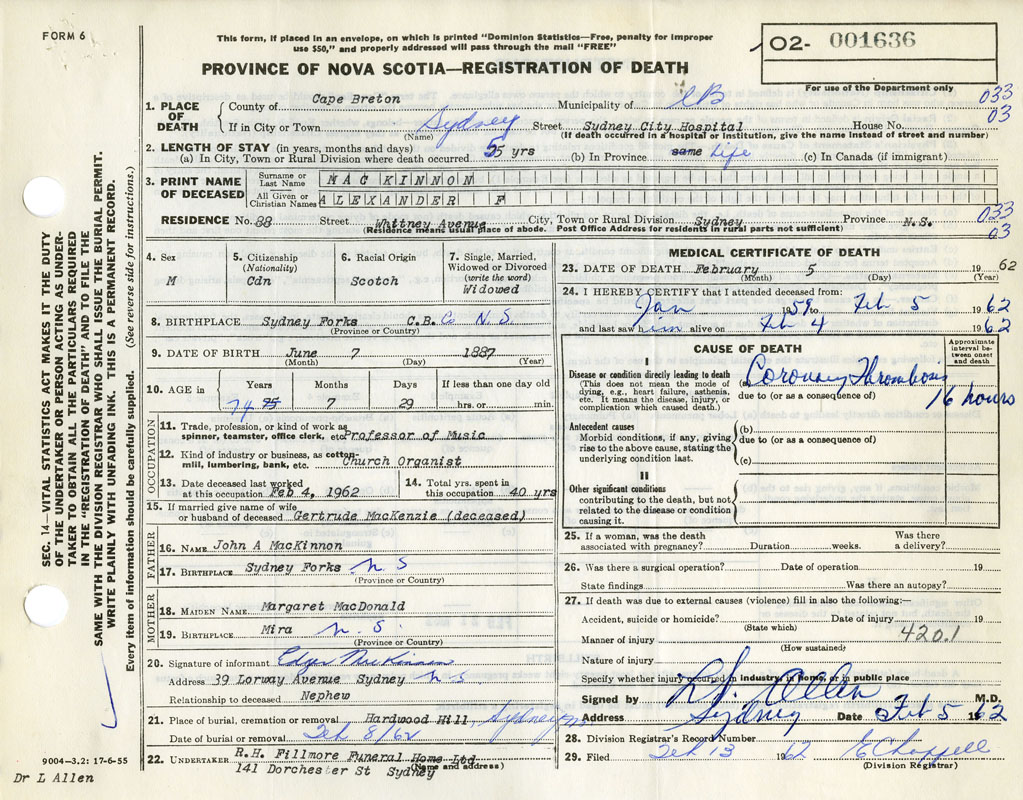 FORM 6
This form, if placed in an envelope, on which is printed "Dominion Statistics—Free, penalty for improper
use $50," and properly addressed will pass through the mail "FREE"
PROVINCE OF NOVA SCOTIA—REGISTRATION OF DEATH
02- 001636
For use of the Department only
SEC. 14—VITAL STATISTICS ACT MAKES IT THE DUTY
OF THE UNDERTAKER OR PERSON ACTING AS UNDER-
TAKER TO OBTAIN ALL THE PARTICULARS REQUIRED
IN THE "REGISTRATION OF DEATH" AND TO FILE THE
SAME WITH THE DIVISION REGISTRAR WHO SHALL ISSUE THE BURIAL PERMIT.
WRITE PLAINLY WITH UNFADING INK. THIS IS A PERMANENT RECORD.
Every item of information should be carefully supplied. (See reverse side for instructions.)
1. PLACE OF DEATH
County of Cape Breton Municipality of CB 033
If in City or Town Sydney Street Sydney City Hospital House No. 03
(Name) (If death occurred in a hospital or institution, give the name instead of street and number)
2. LENGTH OF STAY (in years, months and days)
(a) In City, Town or Rural Division where death occurred 55 yrs (b) In Province same Life (c) In Canada (if immigrant)
3. PRINT NAME OF DECEASED
Surname or Last Name MACKINNON
All Given or Christian Names ALEXANDER F
RESIDENCE No. 88 Street Whitney Avenue City, Town or Rural Division Sydney Province N.S. 033
(Residence means usual place of abode. Post Office Address for residents in rural parts not sufficient) 03
4. Sex
M
5. Citizenship
(Nationality)
Cdn
6. Racial Origin
Scotch
7. Single, Married,
Widowed or Divorced
(write the word)
Widowed
8. BIRTHPLACE Sydney Forks C.B. Co N.S.
(Province or Country)
9. DATE OF BIRTH June 7 1887
(Month) (Day) (Year)
10. AGE in
Years Months Days If less than one day old
74 7 29 hrs. or min.
OCCUPATION
11. Trade, profession, or kind of work as
spinner, teamster, office clerk, etc. Professor of Music
12. Kind of industry or business, as cotton-
mill, lumbering, bank, etc. Church Organist
13. Date deceased last worked
at this occupation Feb 4, 1962
14. Total yrs. spent in
this occupation 40 yrs
15. If married give name of wife
or husband of deceased Gertrude MacKenzie (deceased)
FATHER
16. NAME John A MacKinnon
17. BIRTHPLACE Sydney Forks N S
(Province or Country)
MOTHER
18. MAIDEN NAME Margaret MacDonald
19. BIRTHPLACE Mira N.S.
(Province or Country)
20. Signature of informant
Address 39 Lorway Avenue Sydney N S
Relationship to deceased Nephew
21. Place of burial, cremation or removal Hardwood Hill, Sydney
Date of burial or removal Feb 8/62
22. UNDERTAKER R.H. Fillmore Funeral Home Ltd
141 Dorchester St Sydney
(Name and address)
MEDICAL CERTIFICATE OF DEATH
23. DATE OF DEATH February 5 1962
(Month) (Day) (Year)
24. I HEREBY CERTIFY that I attended deceased from:
Jan 1959 to Feb 5 1962
and last saw him alive on Feb 4 1962
CAUSE OF DEATH
Approximate
interval be-
tween onset
and death
I
Disease or condition directly leading to death
(This does not mean the mode of
dying, e.g., heart failure, asthenia,
etc. It means the disease, injury, or
complication which caused death.)
(a) Coronary Thrombosis
due to (or as a consequence of)
16 hours
Antecedent causes
Morbid conditions, if any, giving
rise to the above cause, stating the
underlying condition last.
(b)
due to (or as a consequence of)
(c)
II
Other significant conditions
contributing to the death, but not
related to the disease or condition
causing it.
25. If a woman, was the death
associated with pregnancy? Duration weeks. Was there
a delivery?
26. Was there a surgical operation? Date of operation 19
State findings Was there an autopsy?
27. If death was due to external causes (violence) fill in also the following:—
Accident, suicide or homicide? Date of injury 19
(State which)
Manner of injury 420.1
(How sustained)
Nature of injury
Specify whether injury occurred in industry, in home, or in public place
Signed by Allen M.D.
Address Sydney Date Feb 5 1962
28. Division Registrar's Record Number
29. Filed Feb 13 1962 E Chappell
(Division Registrar)
9004—3.2: 17-6-55
Dr L Allen